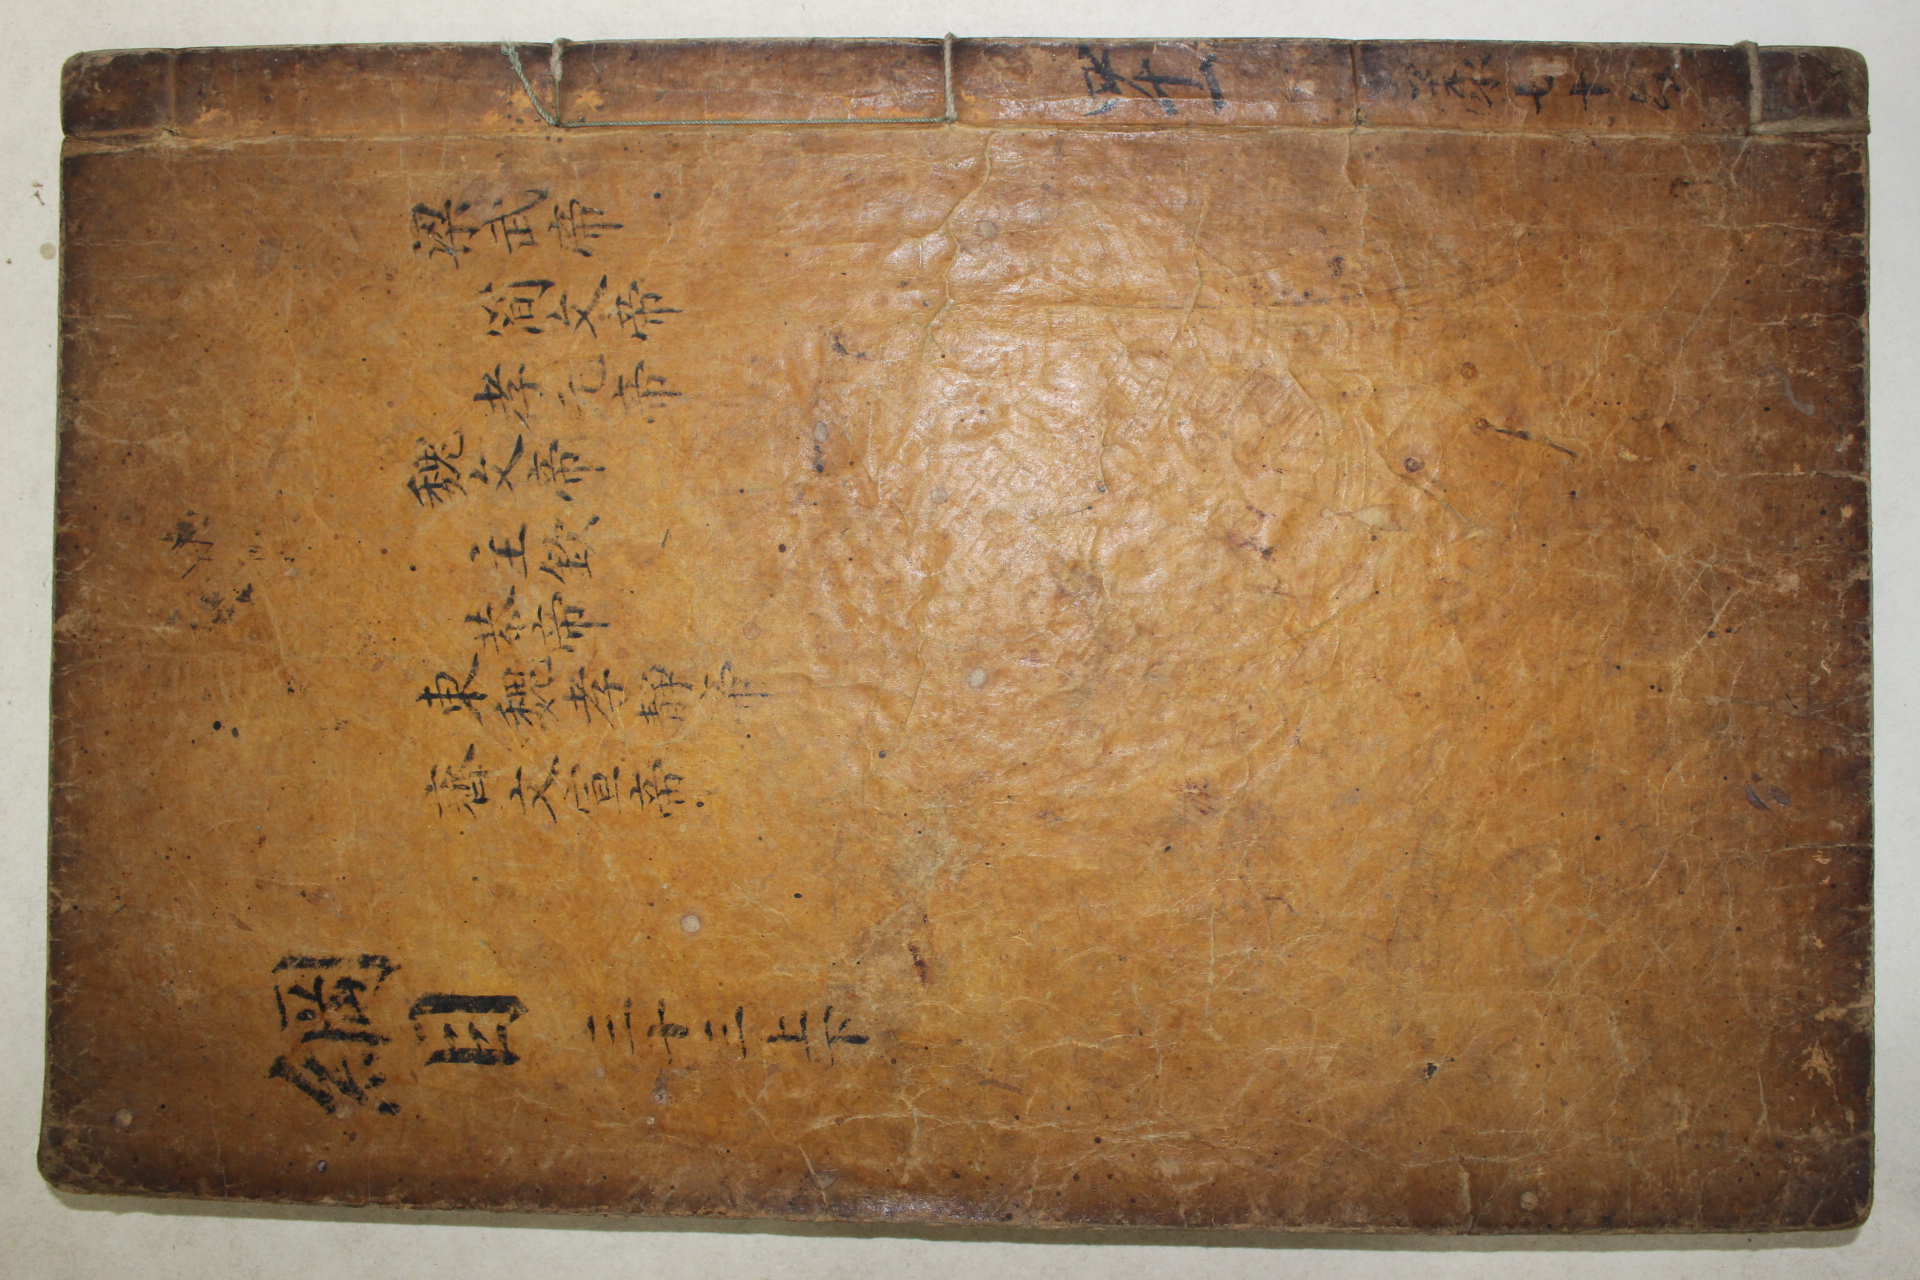 梁武帝
簡文帝
孝元帝
魏文帝
主欽
恭帝
東魏孝靜帝
齊文宣帝
綱目
三十三上下
四十一
共
七十